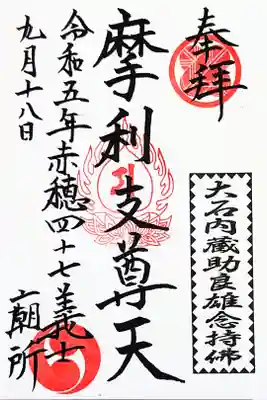 奉拝
大石内蔵助良雄念持佛
摩利支尊天
令和五年赤穂四十七義士廟所
九月十八日